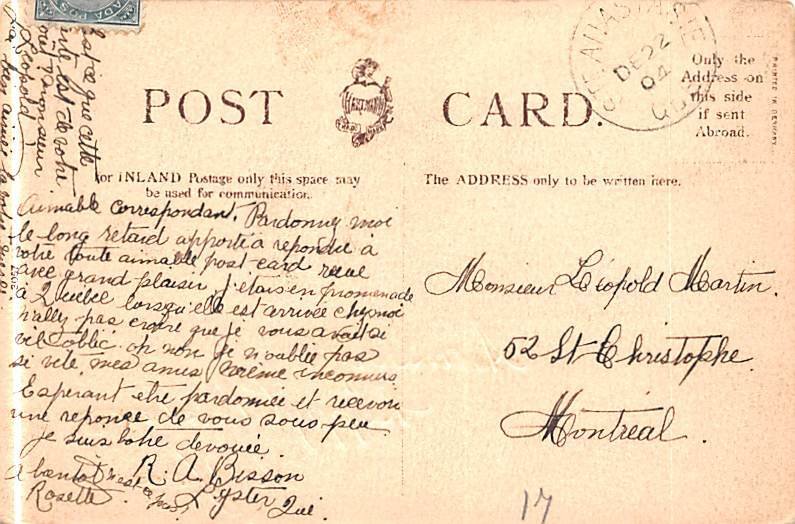 CANADA POST
POST CARD.
Only the
Address on
this side
if sent
Abroad.
PRINTED IN GERMANY
DE 22
04
QUE
For INLAND Postage only this space may
be used for communication.
The ADDRESS only to be written here.
est ce que cette
est de votre
monsieur
Léopold
Aimable Correspondant. Pardonnez moi
le long retard apporté à repondre à
votre toute aimable post-card reçue
avec grand plaisir. J'étais en promenade
à Québec lorsqu'elle est arrivée chez moi
n'allez pas croire que je vous avait si
vite oblié. oh non je n'oublie pas
si vite, mes amis même inconnus
Esperant etre pardonnée et recevoir
une reponce de vous sous peu
je suis votre devouée
R. A. Bisson
Lyster Qué.
A bientôt n'est-ce pas
Rosette
Monsieur Léopold Martin.
52 St-Christophe.
Montréal.
17